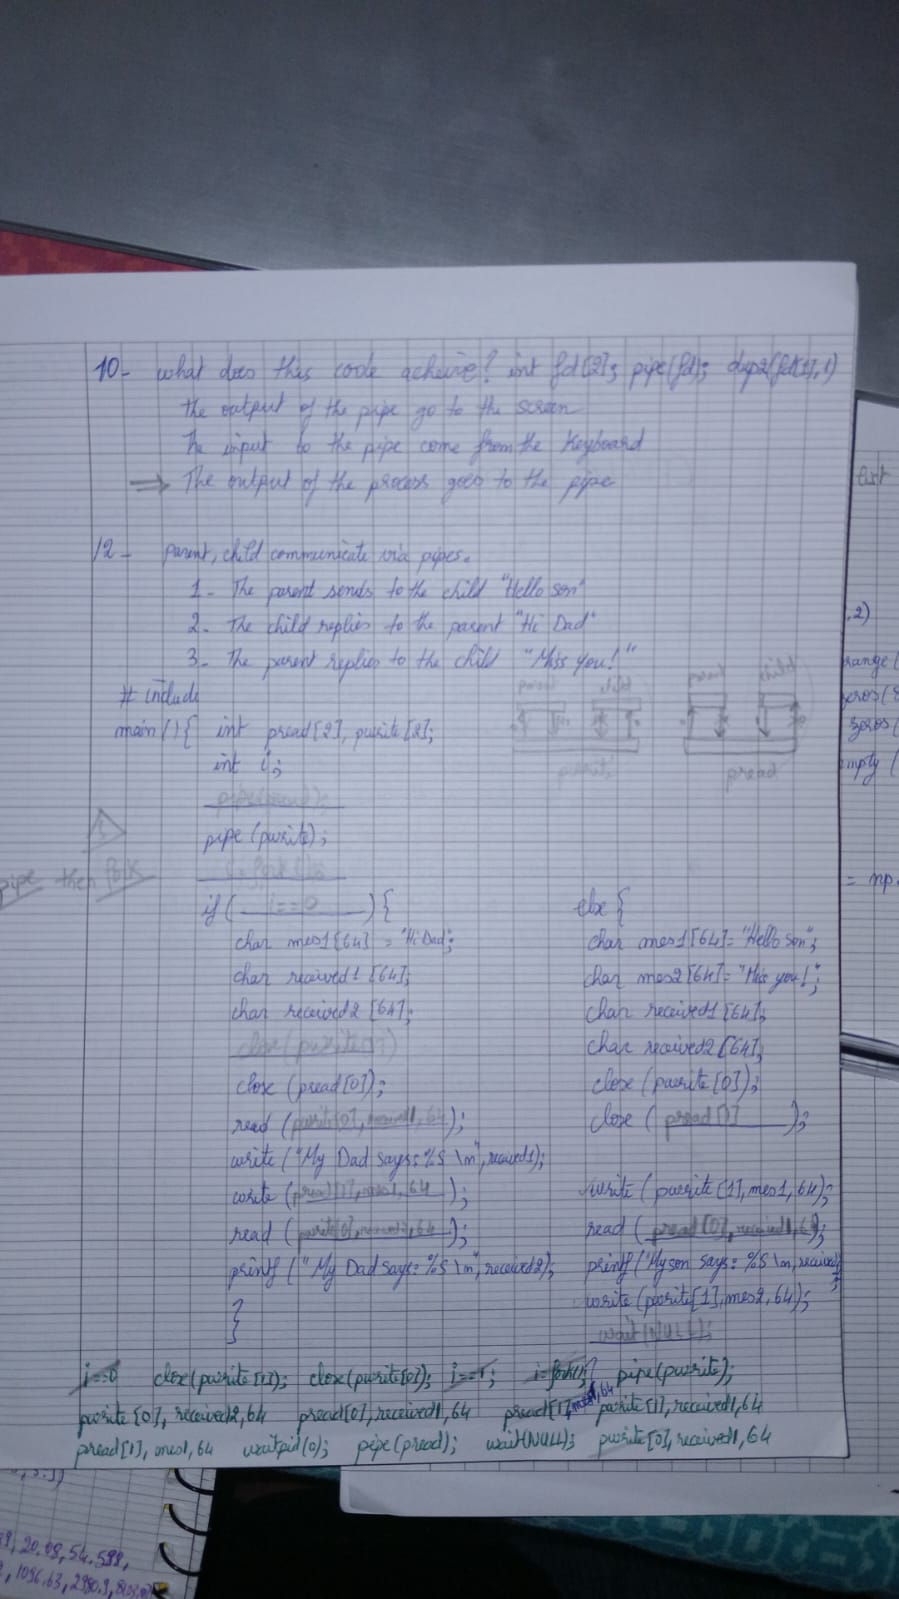 10- what does this code acheive? int fd[2]; pipe(fd); dup2(fd[1],1)
the output of the pipe go to the screen
The input to the pipe come from the Keyboard
⇒ The output of the process goes to the pipe
12- parent, child communicate via pipes.
1- The parent sends to the child "Hello son"
2- The child replies to the parent "Hi Dad"
3- The parent replies to the child "Miss you!"
# include
main(){ int pread[2], pwrite[2];
int i;
pipe(pread);
pipe(pwrite);
pipe then fork
i=fork();
if( i==0 ){
char mes1[64] = "Hi Dad";
char received1 [64];
char received2 [64];
close(pwrite[1])
close (pread[0]);
read (pwrite[0], received1, 64);
write ("My Dad says: %s \n", received1);
write (pread[1], mes1, 64);
read (pwrite[0], received2, 64);
printf ("My Dad says: %s \n", received2);
}
else {
char mes1[64]= "Hello son";
char mes2[64]= "Miss you!";
char received1[64];
char received2[64];
close (pwrite[0]);
close ( pread[1] );
write (pwrite[1], mes1, 64);
read ( pread[0], received1, 64);
printf ("My son says: %s \n, received
write (pwrite[1], mes2, 64);
wait(NULL);
parent child parent child
pwrite pread
i==0 close(pwrite[1]); close(pwrite[0]); i==1; i=fork(); pipe(pwrite);
pwrite[0], received2, 64 pread[0], received1, 64 pread[1], mes1, 64 pwrite[1], received1, 64
pread[1], mes1, 64 waitpid(0); pipe(pread); wait(NULL); pwrite[0], received1, 64
list
.2)
range(
zeros(
zeros(
empty (
= np.
9, 20.08, 54.598,
, 1096.63, 2980.9,